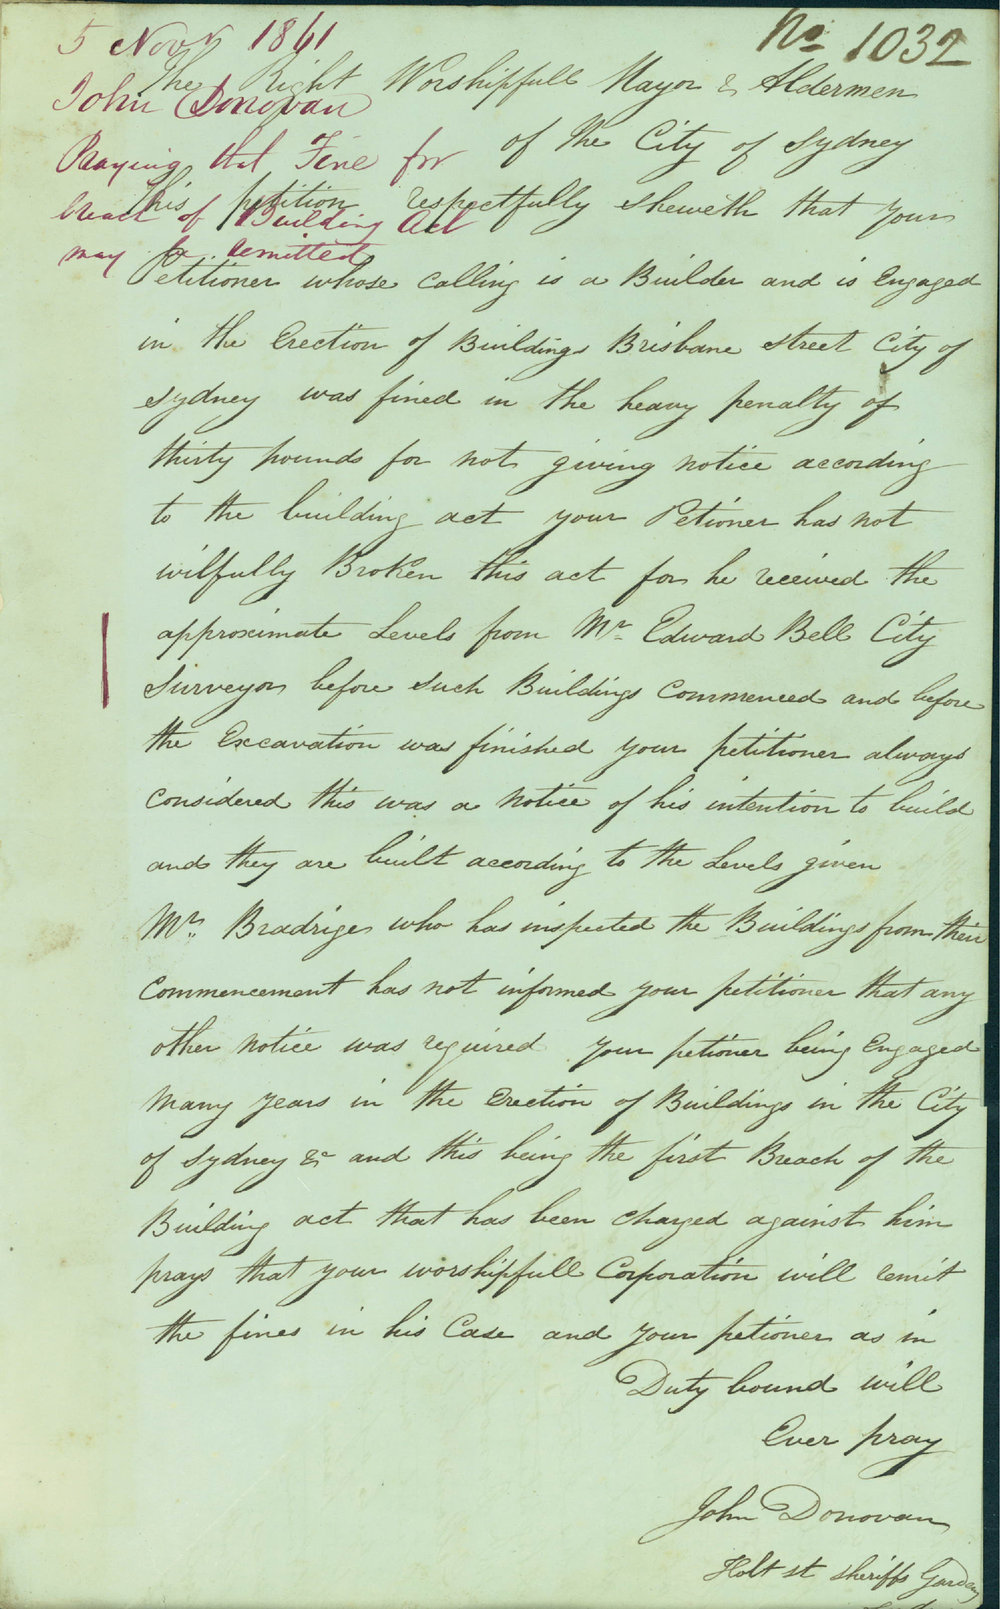 5 Novr 1861
No 1032
John Donovan
Praying that Fine for
breach of Building Act
may be remitted
The Right Worshipfull Mayor & Aldermen
of the City of Sydney
This petition respectfully sheweth that your
Petitioner whose calling is a Builder and is Engaged
in the Erection of Buildings Brisbane street City of
Sydney was fined in the heavy penalty of
thirty pounds for not giving notice according
to the building act your Petioner has not
wilfully Broken this act for he received the
approximate Levels from Mr Edward Bell City
Surveyor before such Buildings Commenced and before
the Excavation was finished your petitioner always
Considered this was a notice of his intention to build
and they are built according to the Levels given
Mr. Bradrige who has inspected the Buildings from their
Commencement has not informed your petitioner that any
other notice was required your petioner being Engaged
Many years in the Erection of Buildings in the City
of Sydney & and this being the first Breach of the
Building act that has been charged against him
prays that your worshipfull Corporation will remit
the fines in his Case and your petioner as in
Duty bound will
Ever pray
John Donovan
Holt st Sheriffs Gardens